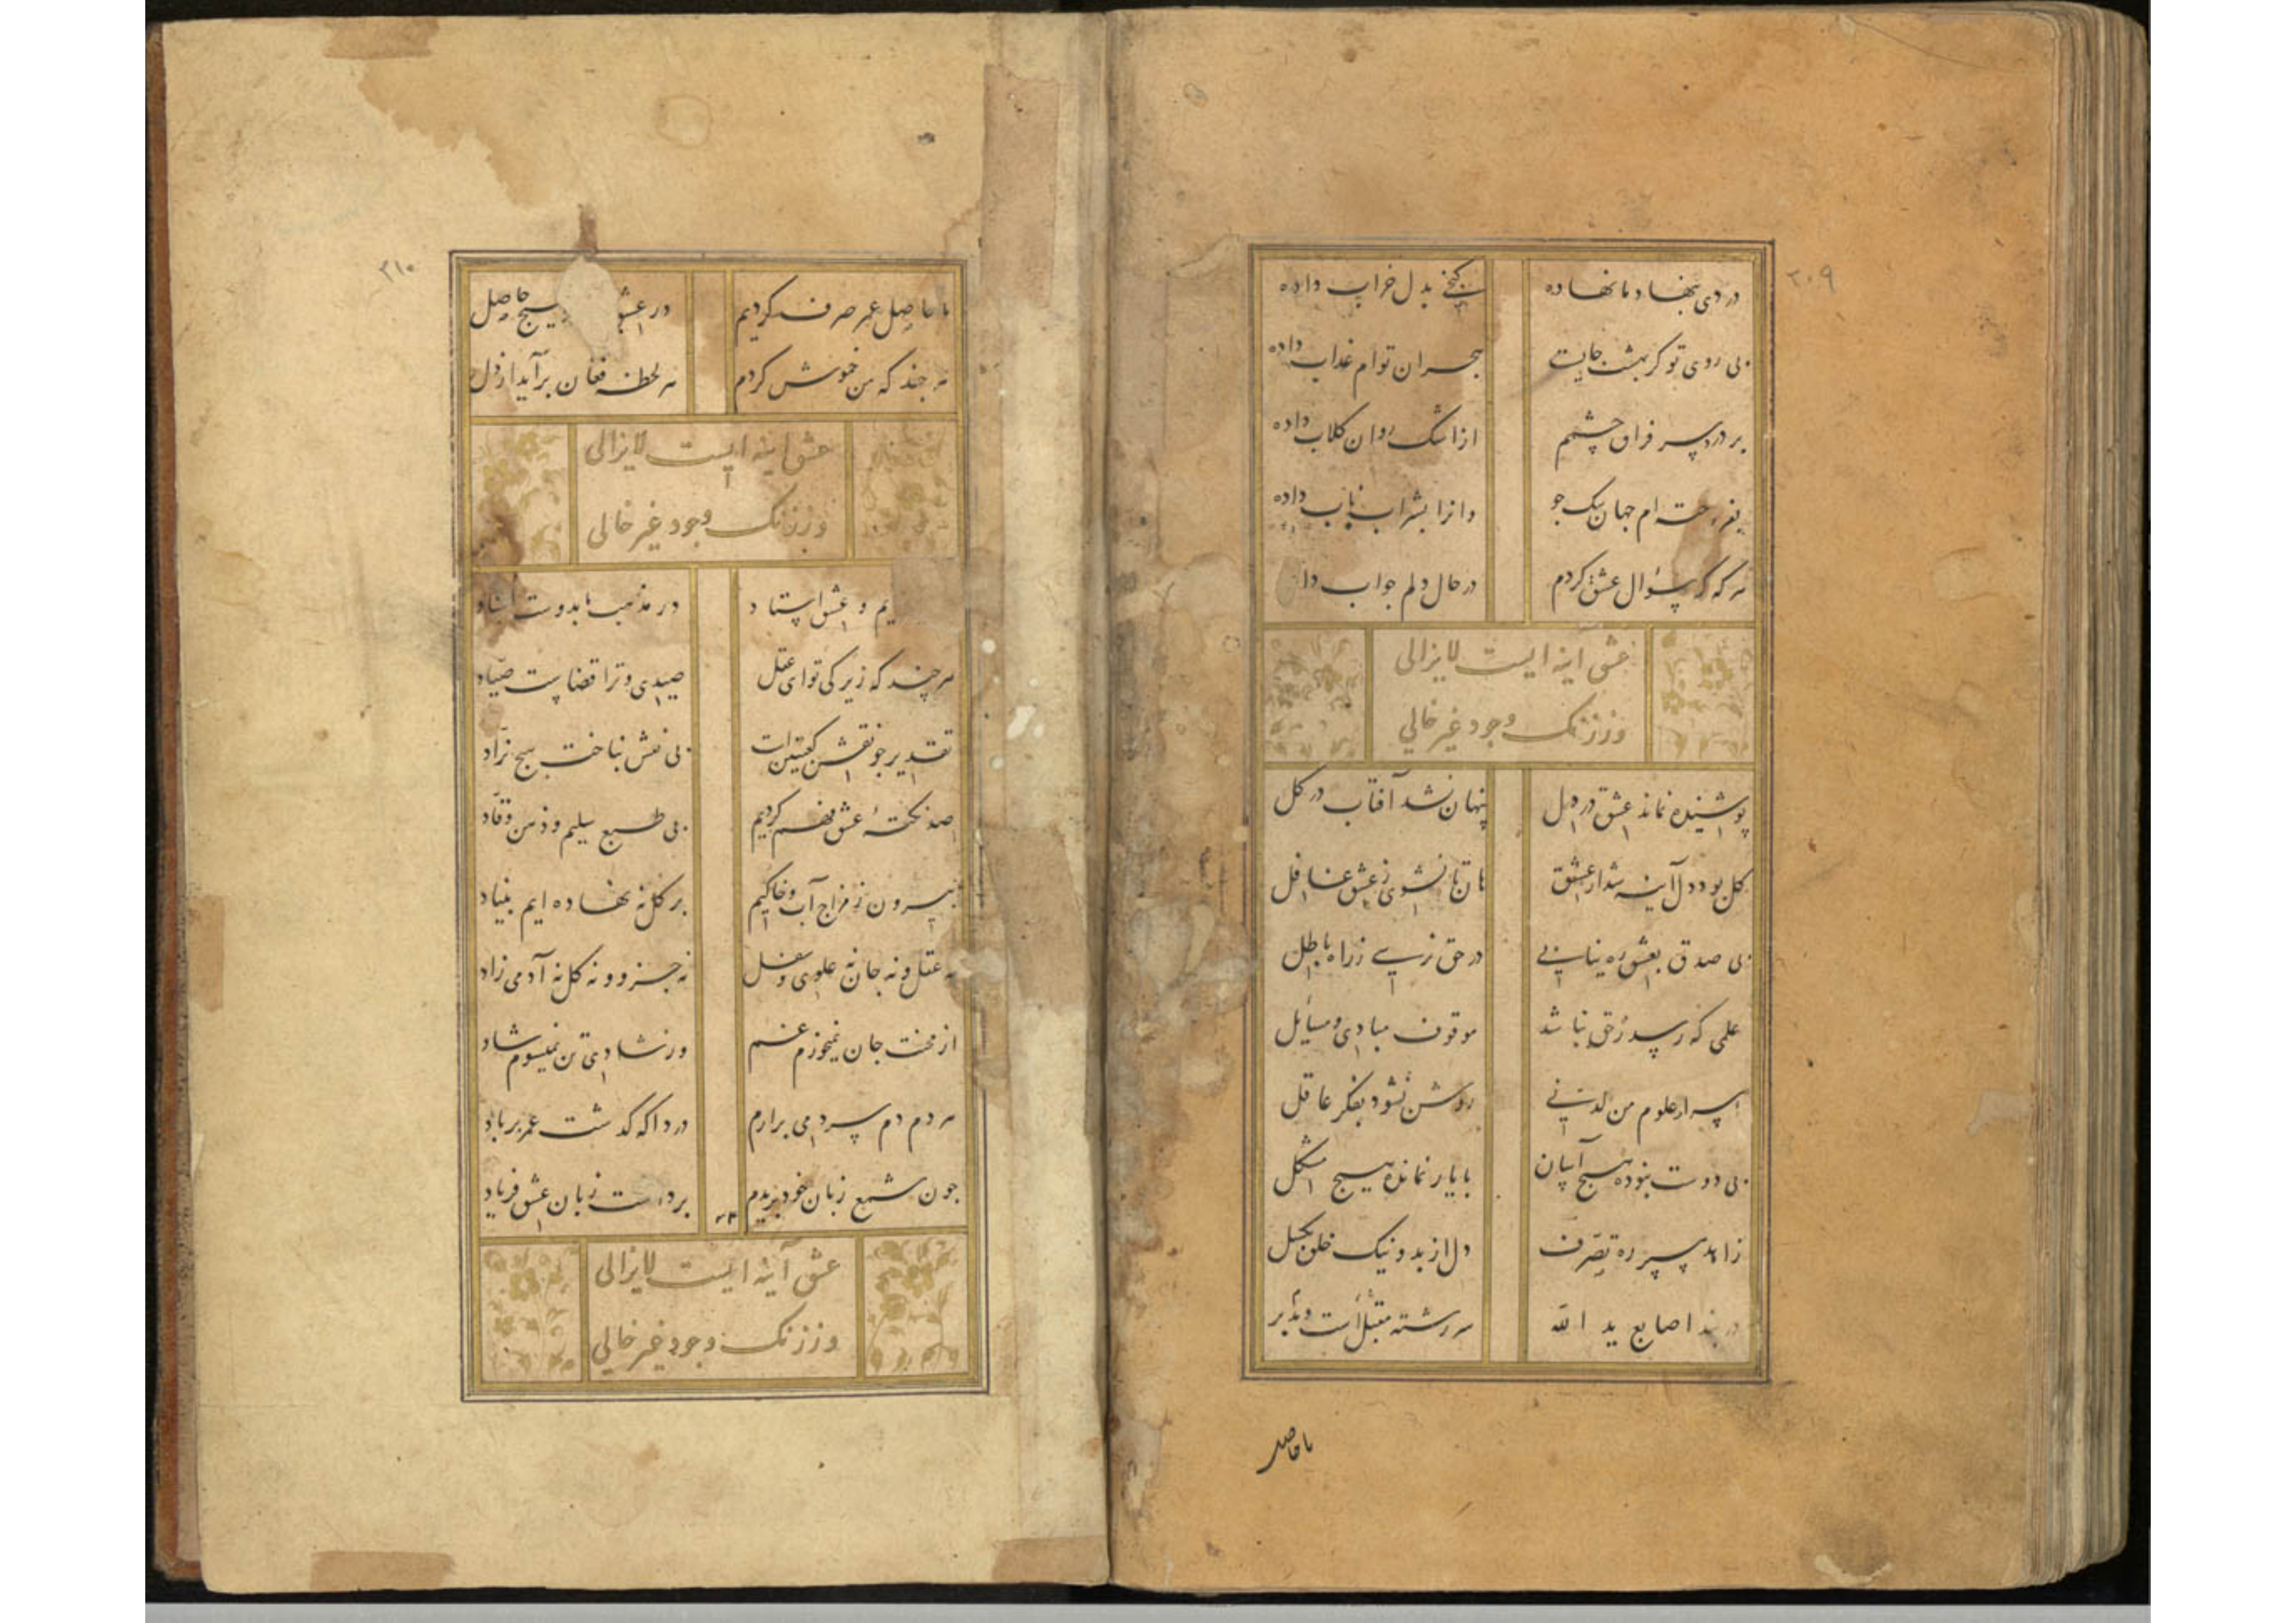 ۳۰۹
دردی بنهاد ما نهاده گنجی بدل خراب داده
بی روی تو کر بهشت جایست هجران توام عذاب داده
بر درد سر فراق چشمم از اشک روان کلاب داده
بفروخته ام جهان بیک جو وانرا بشراب ناب داده
هر که که سؤال عشق کردم در حال دلم جواب
عشق آینه ایست لایزالی
وز زنک وجود غیر خالی
پوشیده نماند عشق در دل پنهان نشد آفتاب در کل
کل بود دل آینه شد از عشق هان تا نشوی ز عشق غافل
بی صدق بعشق ره نیابی در حق نرسی ز راه باطل
علمی که رسد ز حق نباشد موقوف مبادی و مسایل
اسرار علوم من لدنی روشن نشود بفکر عاقل
بی دوست نبوده هیچ آسان با یار نمانده هیچ مشکل
زاهد بسپر ره تصرف دل از بد و نیک خلق بکسل
در بند اصابع ید الله سررشته مقبل است و مدبر
ما حاصل
۳۱۰
ما حاصل عمر صرف کردیم در هیچ حاصل
هر چند که من خموش کردم هر لحظه فغان برآید از دل
عشق اینه ایست لایزالی
وز زنک وجود غیر خالی
و عشق استاد در مذهب ما بدوست
هر چند که زیرکی تو ای عقل صیدی و ترا قضاست صیاد
تقدیر چو نقش کعبتین است بی نقش نباخت هیچ نراد
صد نکتهٔ عشق فهم کردیم بی طبع سلیم و ذهن وقاد
بیرون ز مزاج آب و خاکیم بر کل نه نهاده ایم بنیاد
نه عقل و نه جان نه علوی و سفل نه جزو و نه کل نه آدمی زاد
از محنت جان نمیخورم غم وز شادی تن نمیشوم شاد
هر دم دم سرد می برارم دردا که کذشت عمر بر باد
چون شمع زبان خود بریدم برداشت زبان عشق فریاد
عشق آینه ایست لایزالی
وز زنک وجود غیر خالی